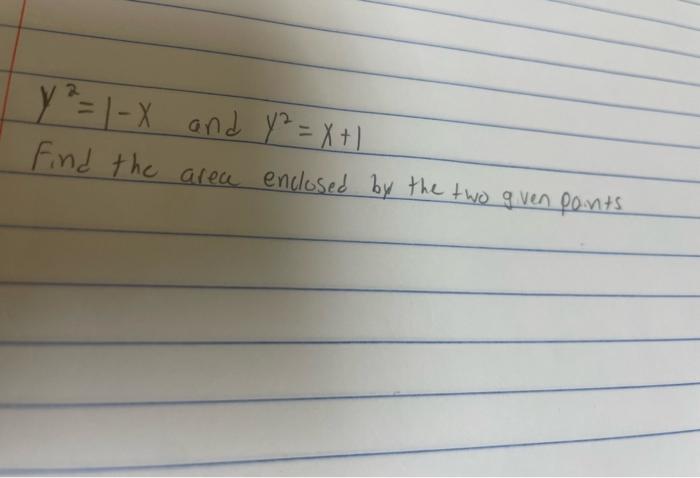 y² = 1-x and y² = x+1
Find the area enclosed by the two given points